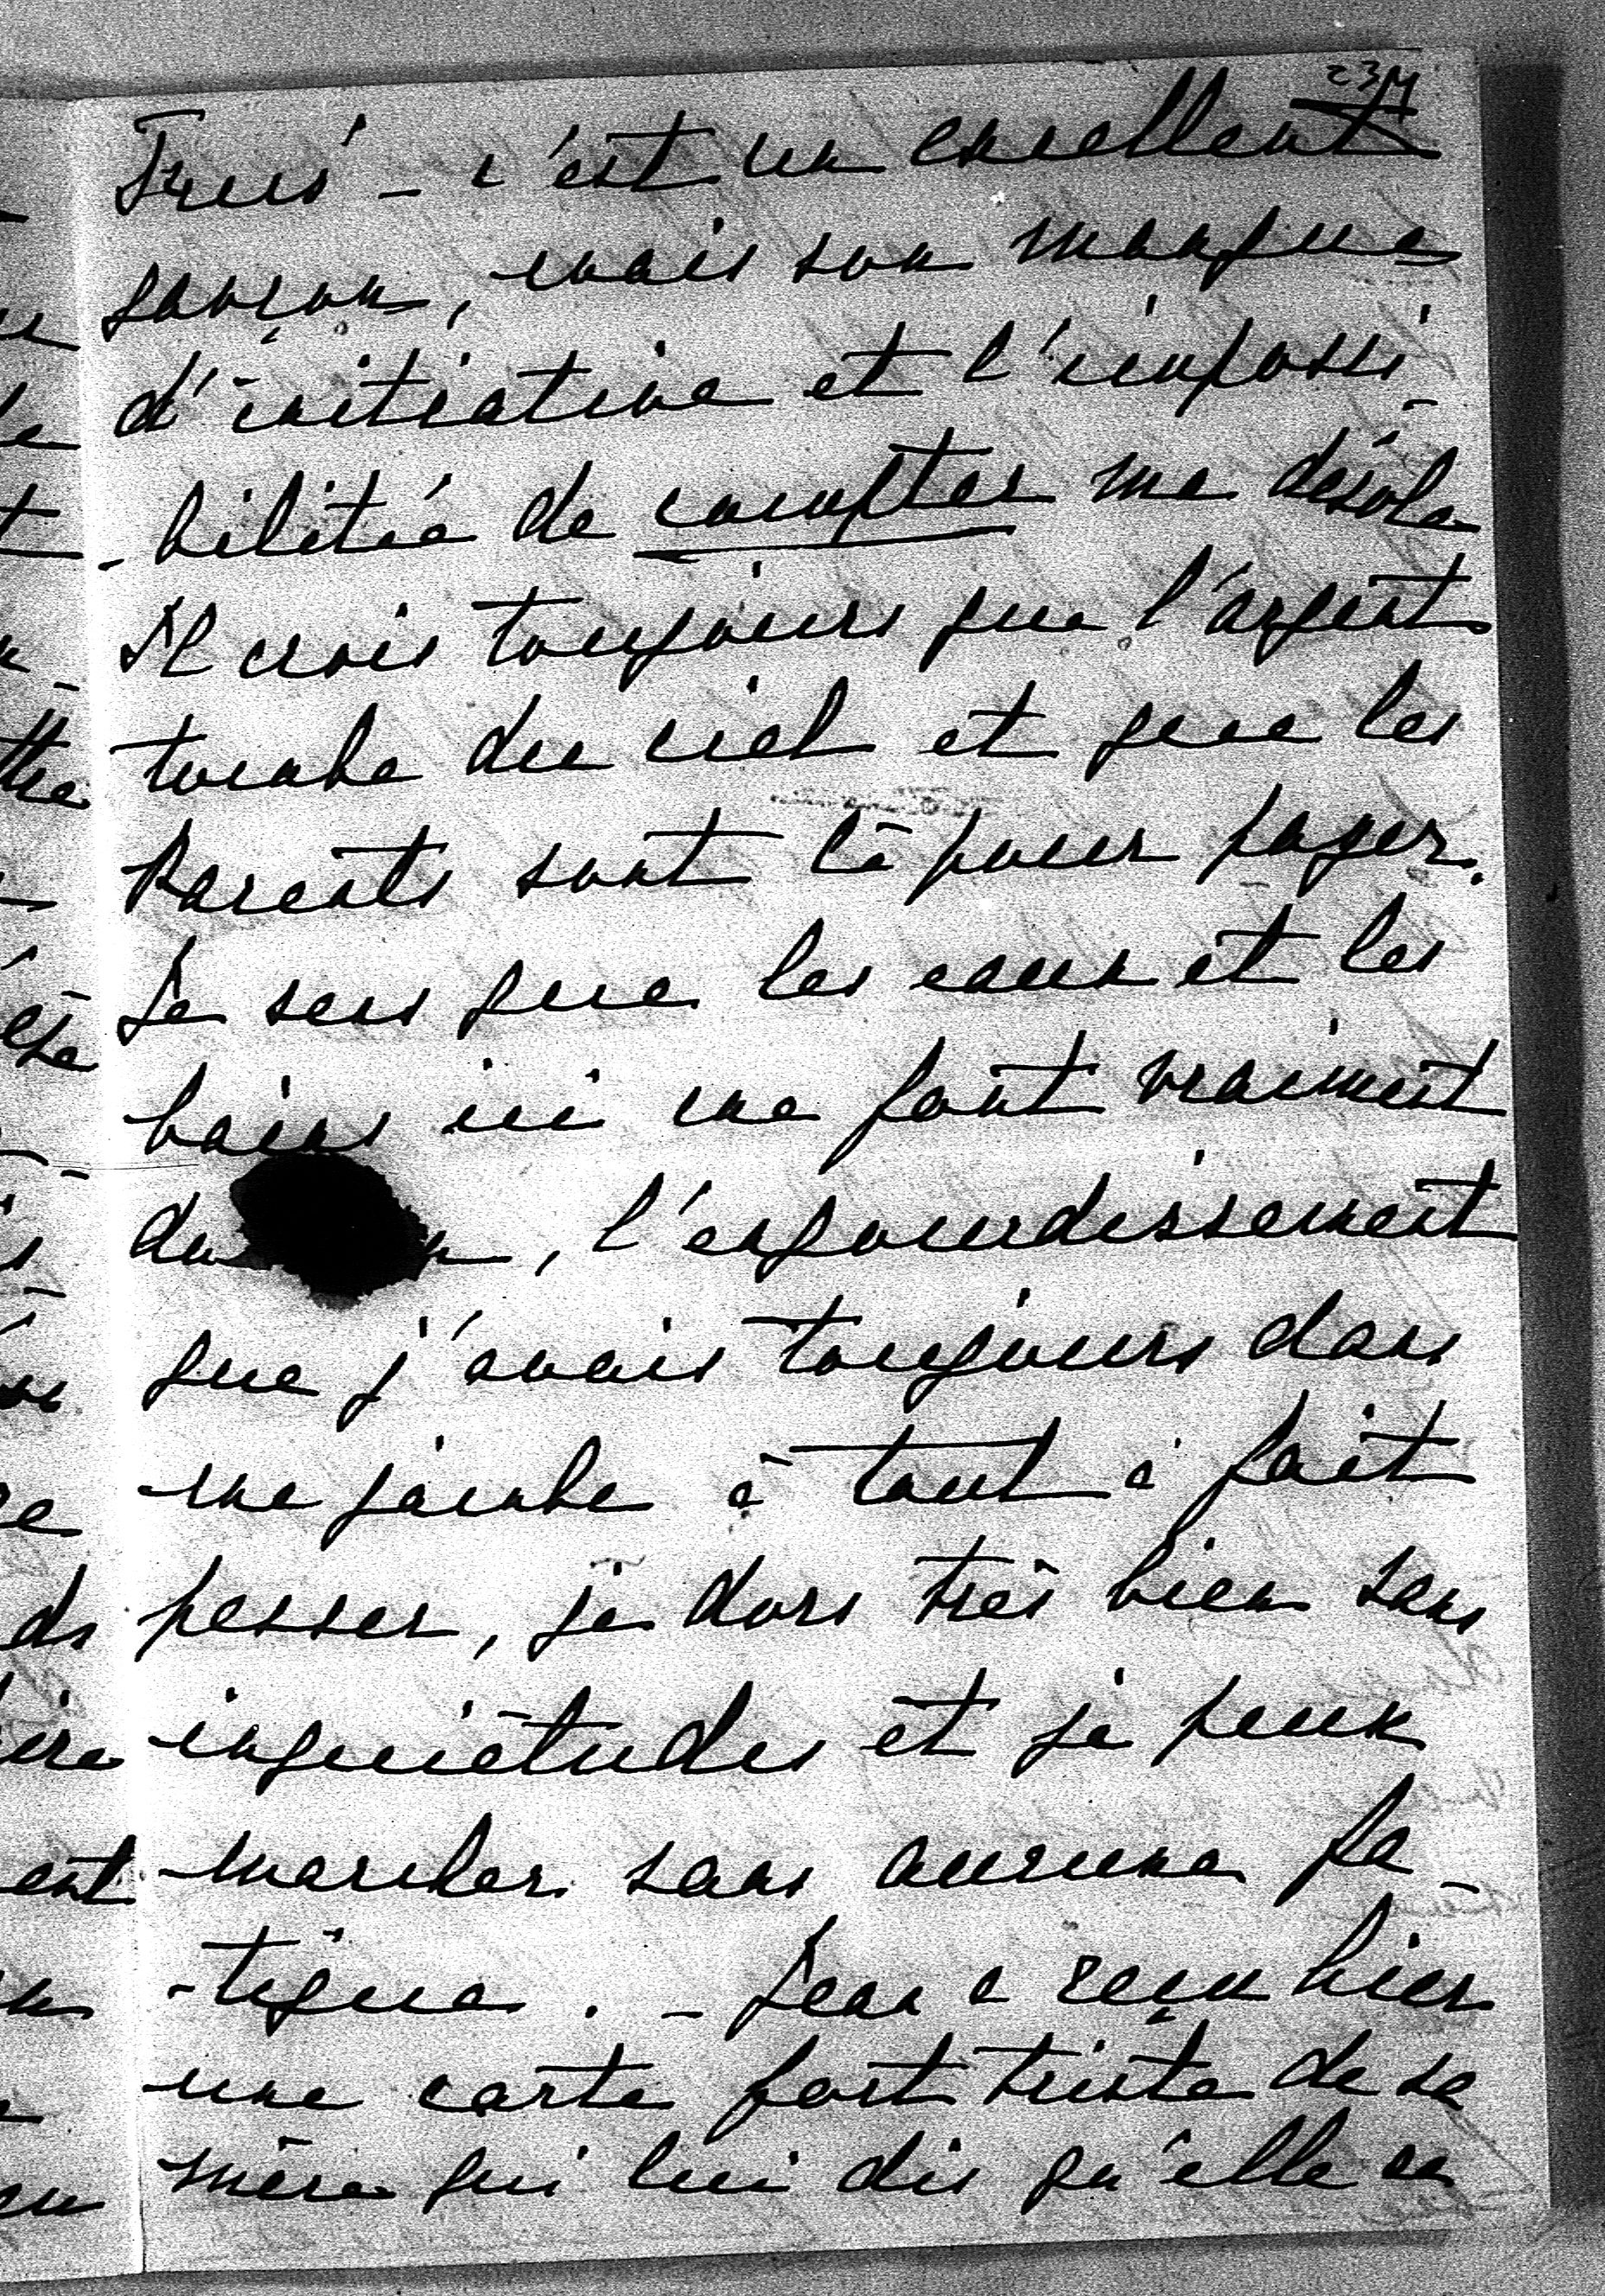 23M
Fruis - c'est un excellent
garçon, mais son manque
d'initiative et l'impossi-
-bilitée de compter me désole
Il crois toujours que l'argent
tombe du ciel et que les
Parents sont là pour payer.
Je sens que les eaux et les
bains ici me font vraiment
du n, l'engourdissement
que j'avais toujours dans
ma jambe à tout à fait
pesser, je dors très bien sans
inquiètudes et je peux
marcher sans aucune fa-
-tigue. - Jean a reçu hier
une carte fort triste de sa
mère qui lui dis qu'elle se